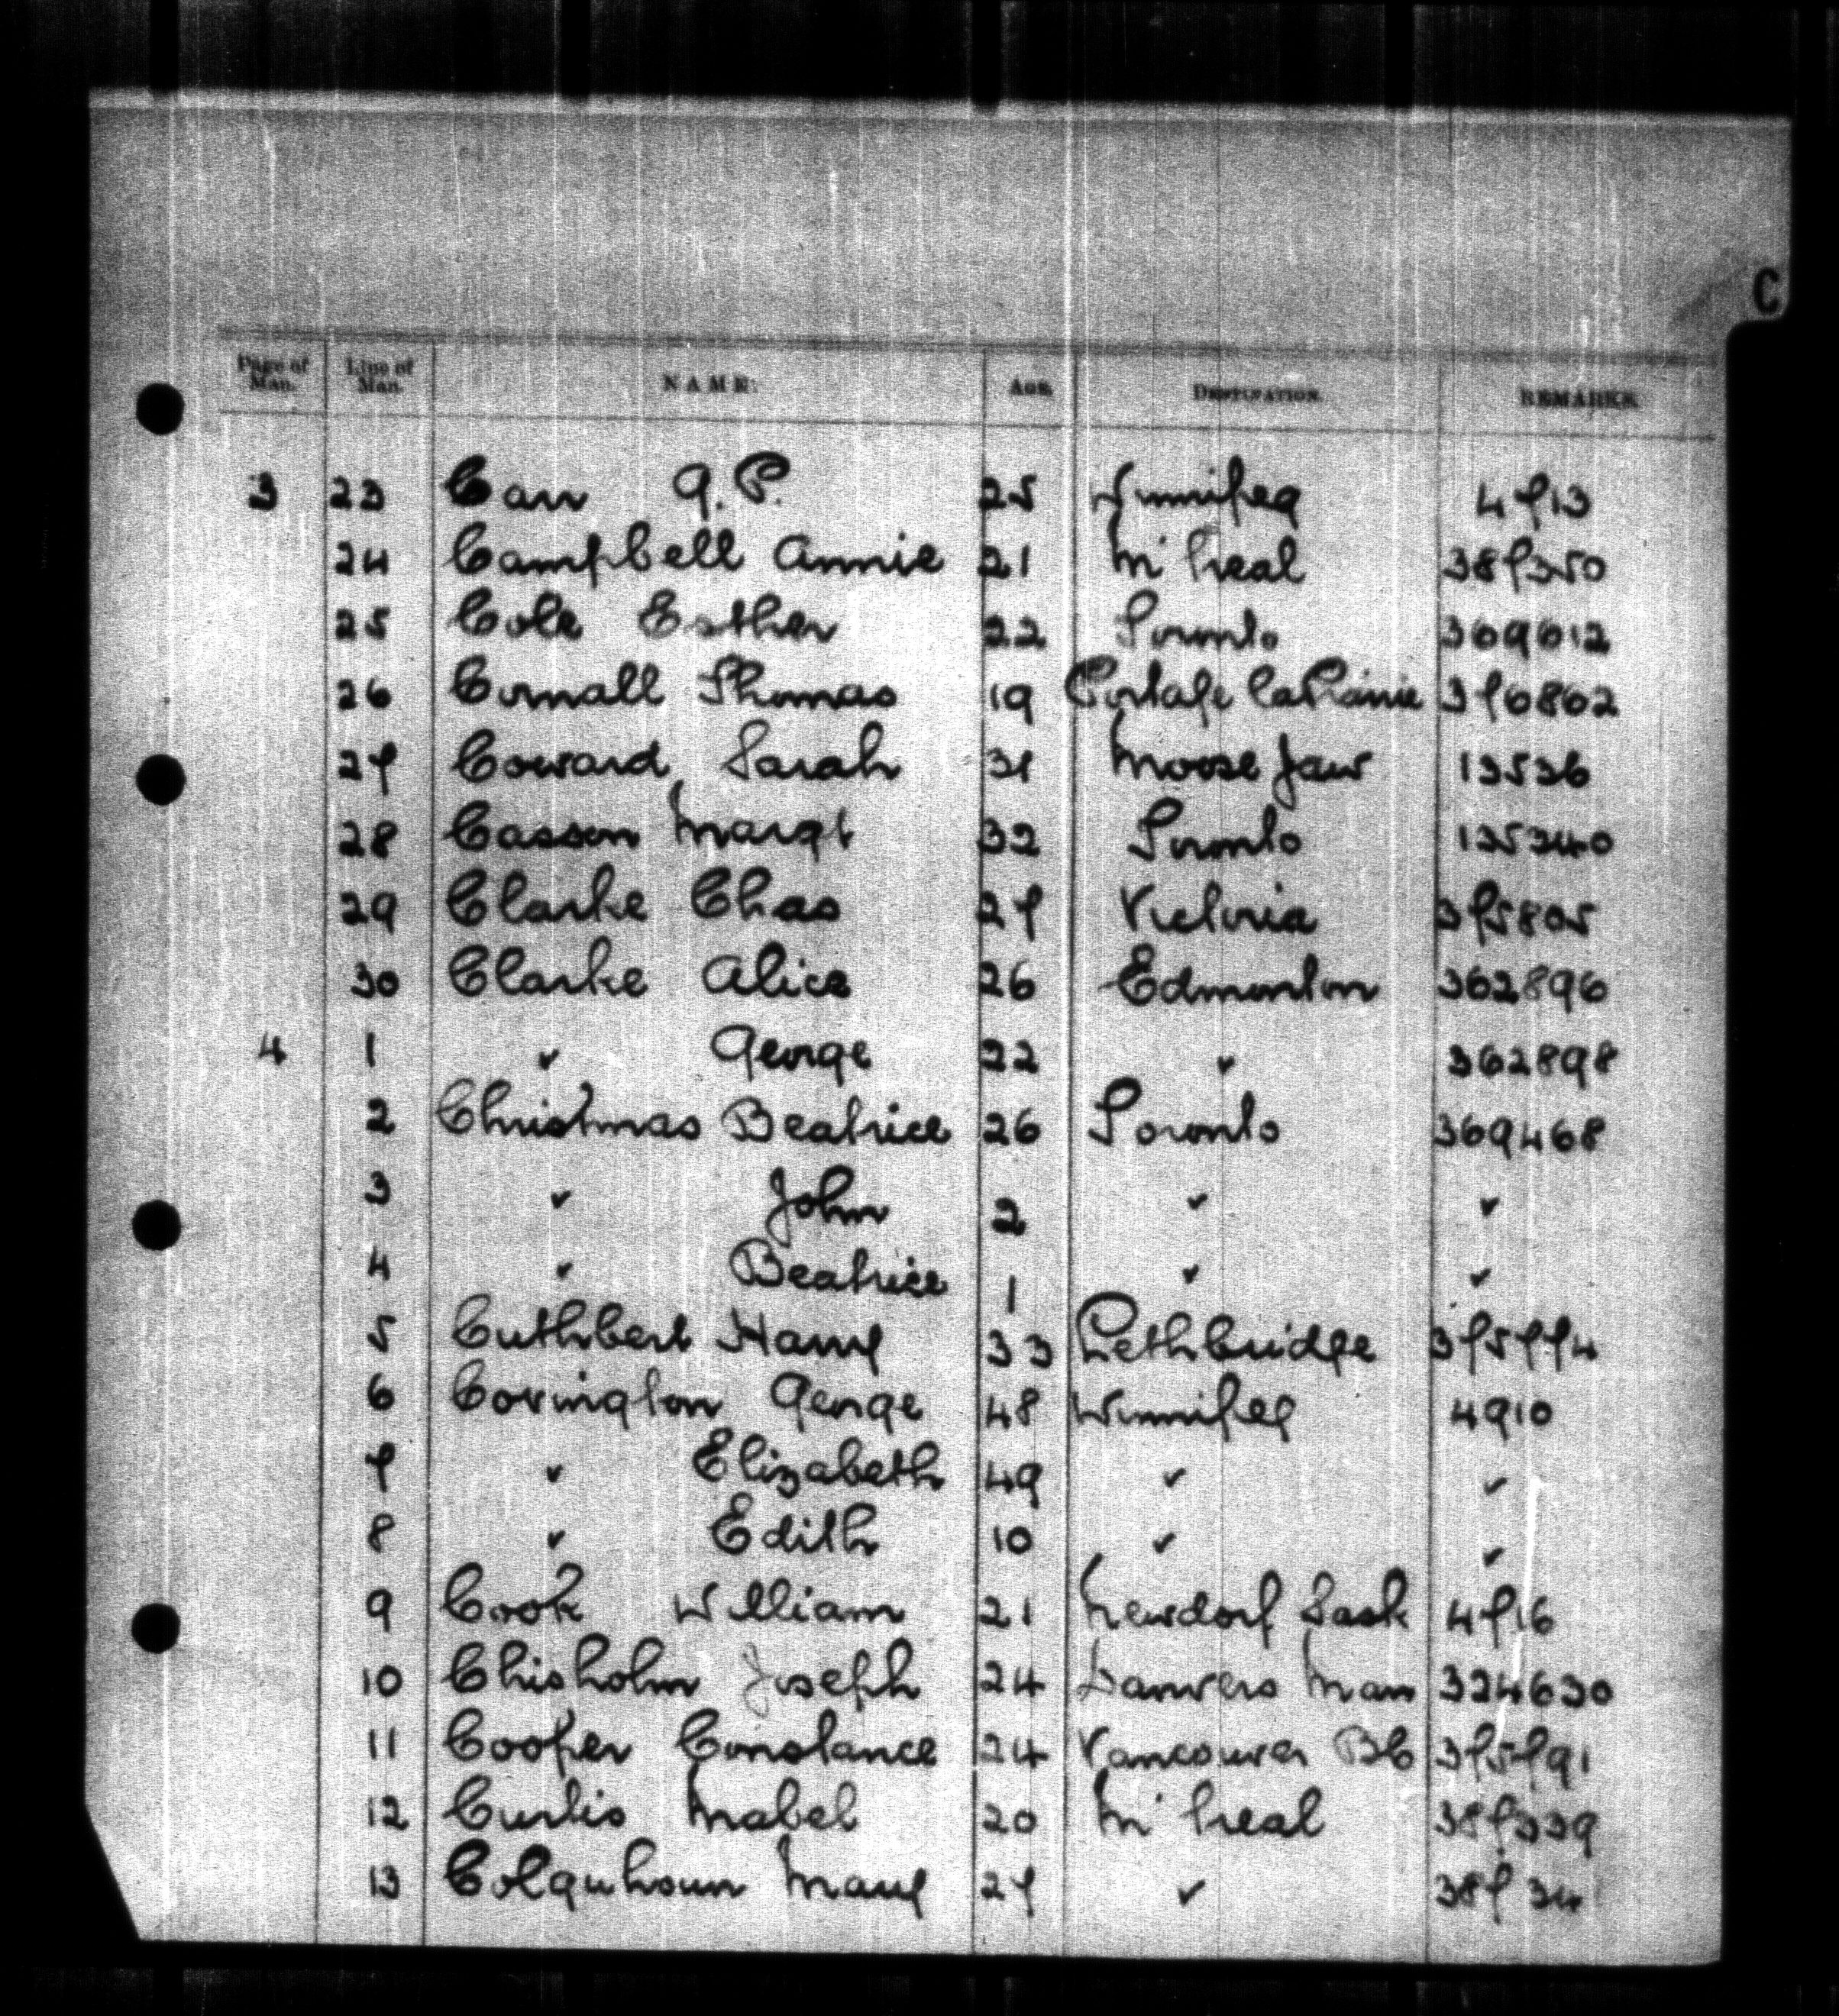 C
Page of Man. Line of Man. NAME. AGE. DESTINATION. REMARKS.
3 23 Carr G. P. 25 Winnipeg 4713
24 Campbell Annie 21 M'treal 387350
25 Cole Esther 22 Toronto 369612
26 Cornall Thomas 19 Portage la Prairie 370862
27 Coward Sarah 31 Moose Jaw 13536
28 Casson Margt 32 Toronto 135340
29 Clarke Chas 27 Victoria 375805
30 Clarke Alice 26 Edmonton 362896
4 1 " George 22 " 362898
2 Christmas Beatrice 26 Toronto 369468
3 " John 2 " "
4 " Beatrice 1 " "
5 Cuthbert Harry 33 Lethbridge 375774
6 Covington George 48 Winnipeg 4910
7 " Elizabeth 49 " "
8 " Edith 10 " "
9 Cook William 21 Newdorf Sask 4716
10 Chisholm Joseph 24 Danvers Man 324630
11 Cooper Constance 24 Vancouver BC 375791
12 Curtis Mabel 20 M'treal 387339
13 Colquhoun Mary 27 " 38734